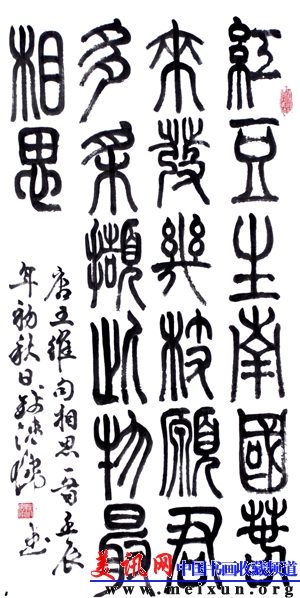 紅豆生南國春
來發幾枝願君
多采擷此物最
相思
唐王維句相思一首壬辰
年初秋日書
美讯网 中国书画收藏频道
www.meixun.org